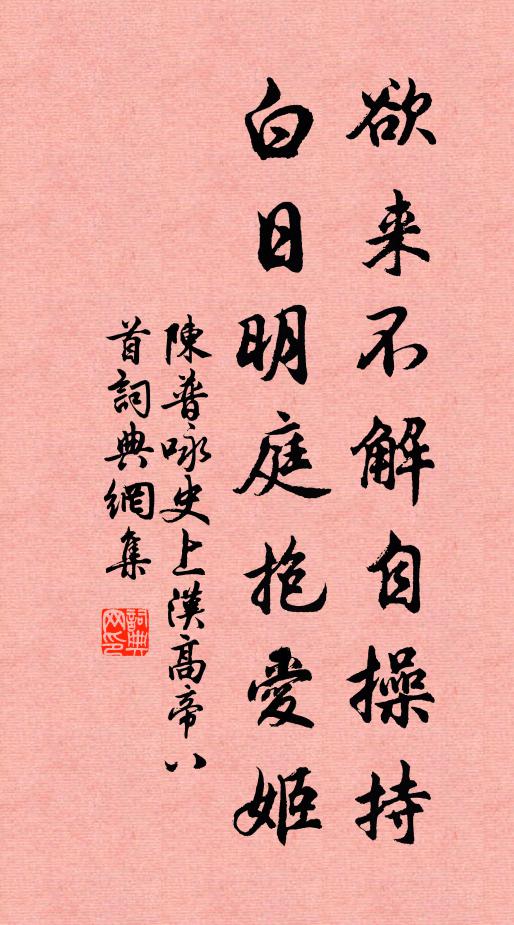 欲来不解自操持
白日明庭抱愛姬
陳普咏史上漢高帝八
首詞典網集
詞典
网印